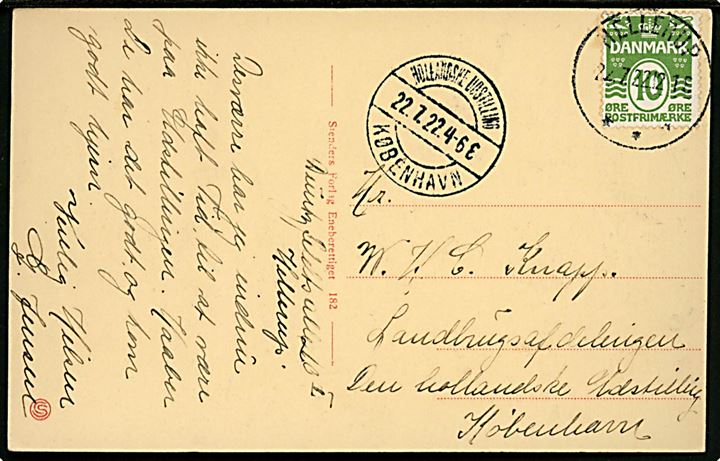 Desværre har jeg endnu
ikke haft Tid til at være
paa Udstillingen. Haaber
De har det godt og kom
godt hjem.
Venlig Hilsen
Jensen
Hellerup
Stenders Forlag Eneberettiget 182
HOLLANDSKE UDSTILLING
22.7.22.4-6E
KØBENHAVN
HELLERUP
22.7.22
DANMARK
10
ØRE ØRE
POSTFRIMÆRKE
Hr.
W. H. C. Knapp.
Landbrugsafdelingen
Den hollandske Udstilling
København